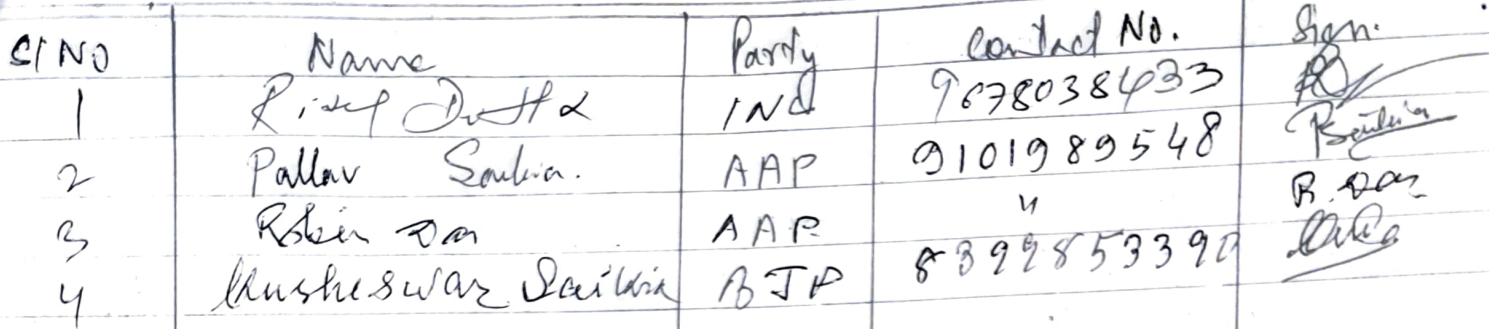 Sl NO Name Party Contact No. Sign.
1 Dutta INC 9678038433
2 Pallav Saikia. AAP 9101989548 PSaikia
3 Robin Das AAP " R. Das
4 Kusheswar Saikia BJP 8399853390